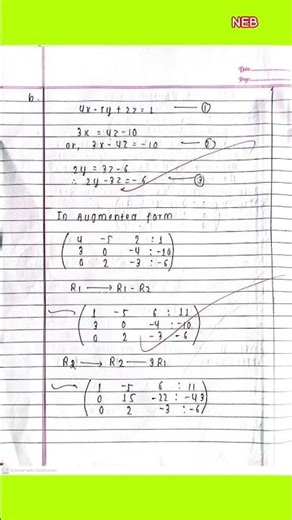 NEB
Date
Page
b.
4x - 5y + 2z = 1 — ①
3x = 4z - 10
or, 3x - 4z = -10 — ②
2y = 3z - 6
∴ 2y - 3z = -6 — ③
In Augmented form
( 4 -5 2 : 1 )
( 3 0 -4 : -10 )
( 0 2 -3 : -6 )
R1 → R1 - R2
~ ( 1 -5 6 : 11 )
( 3 0 -4 : -10 )
( 0 2 -3 -6 )
R2 → R2 — 3R1
~ ( 1 -5 6 : 11 )
( 0 15 -22 : -43 )
( 0 2 -3 : -6 )